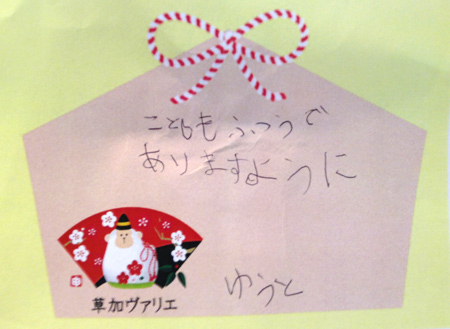 こどももふつうで
ありますように
ゆうと
草加ヴァリエ